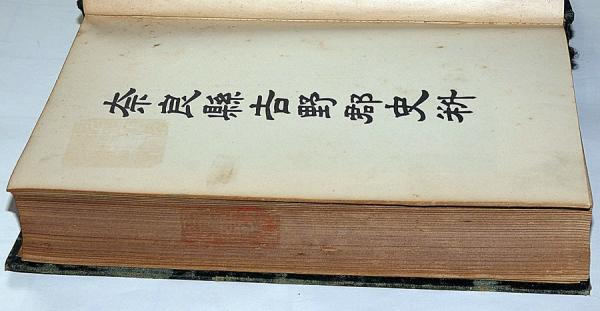 奈良縣吉野郡史料